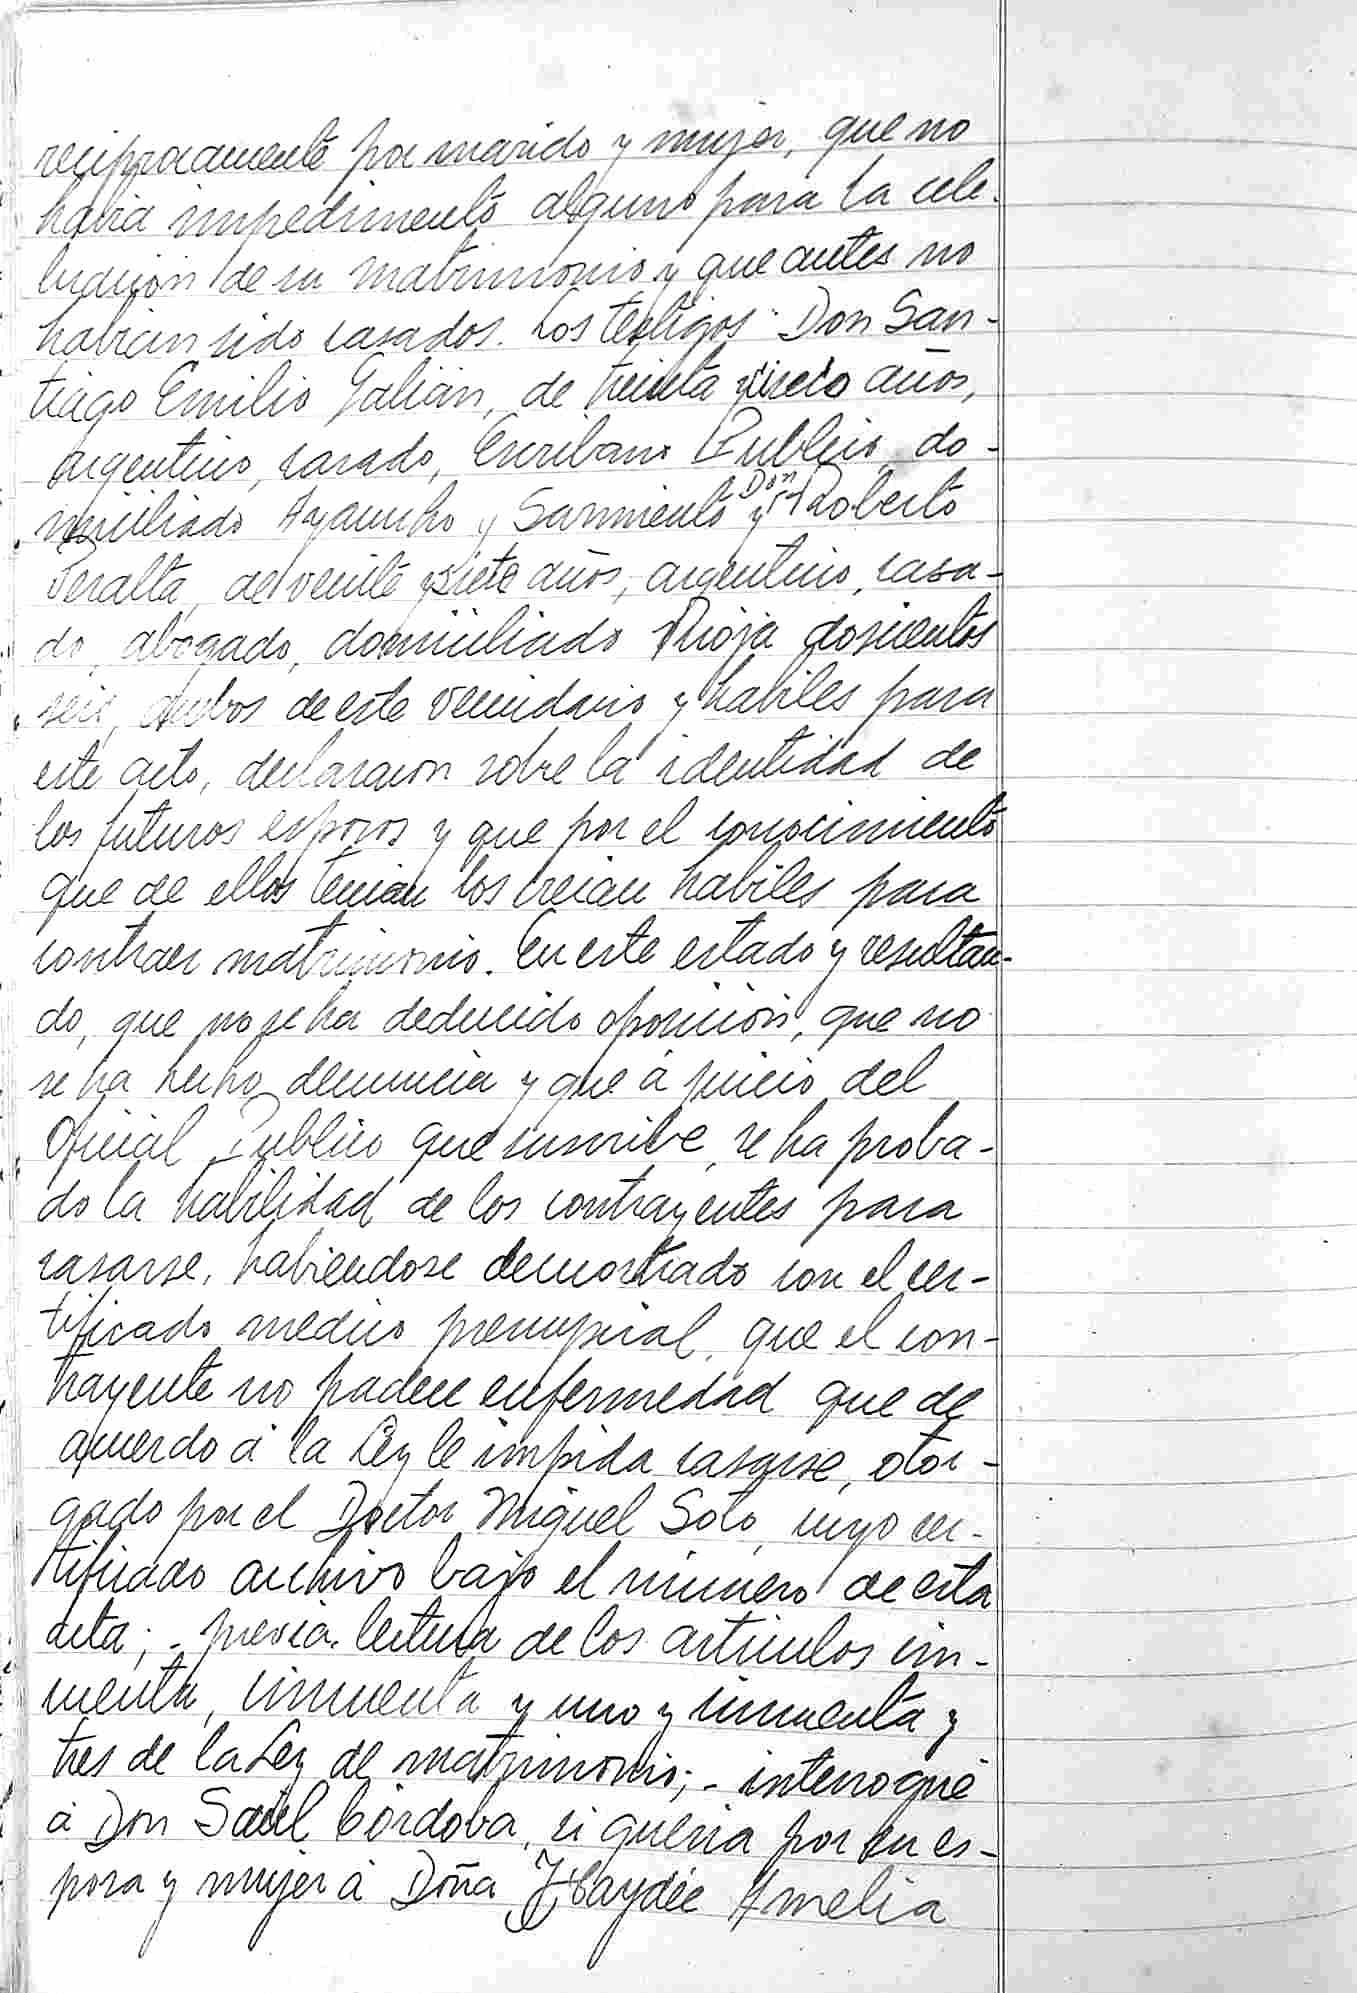 reciprocamente por marido y mujer, que no
habia impedimento alguno para la cele-
bración de su matrimonio y que antes no
habian sido casados. Los testigos: Don San-
tiago Emilio Galián, de treinta y cinco años,
argentino, casado, Escribano Publico, do-
miciliado Ayacucho y Sarmiento y Don Roberto
Peralta, de veinte y siete años, argentino, casa-
do, abogado, domiciliado Rioja doscientos
seis, ambos de este vecindario y habiles para
este acto, declararon sobre la identidad de
los futuros esposos y que por el conocimiento
que de ellos tenian los creian habiles para
contraer matrimonio. En este estado y resultan-
do, que no se ha deducido oposición, que no
se ha hecho denuncia y que á juicio del
Oficial Publico que suscribe, se ha proba-
do la habilidad de los contrayentes para
casarse, habiendose demostrado con el cer-
tificado medico prenupcial, que el con-
trayente no padece enfermedad que de
acuerdo á la Ley le impida casarse, otor-
gado por el Doctor Miguel Soto, cuyo cer-
tificado archivo bajo el número de esta
acta; - previa lectura de los articulos cin-
cuenta, cincuenta y uno y cincuenta y
tres de la Ley de matrimonio; - interrogué
á Don Saúl Córdoba, si queria por su es-
posa y mujer á Doña Haydée Amelia